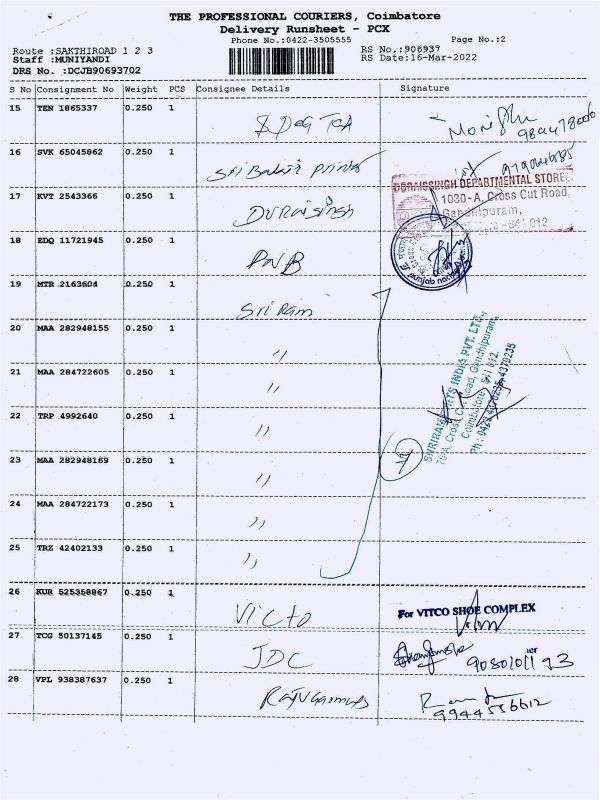 THE PROFESSIONAL COURIERS, Coimbatore
Delivery Runsheet - PCX
Phone No.:0422-3505555 Page No.:2
Route :SAKTHIROAD 1 2 3 RS No.:906937
Staff :MUNIYANDI RS Date:16-Mar-2022
DRS No. :DCJB90693702
S No Consignment No Weight PCS Consignee Details Signature
15 TEN 1865337 0.250 1
16 SVK 65045862 0.250 1 Sri Balaji Printer
17 KVT 2543366 0.250 1 Duraisingh
DORAISSINGH DEPARTMENTAL STORES
1030-A, Cross Cut Road,
Gandhipuram,
18 EDQ 11721945 0.250 1 PNB
19 MTR 2163604 0.250 1 Sri Ram
20 MAA 282948155 0.250 1 "
21 MAA 284722605 0.250 1 "
22 TRP 4992640 0.250 1 "
23 MAA 282948169 0.250 1 "
24 MAA 284722173 0.250 1 "
25 TRZ 42402133 0.250 1 "
7
INDIA PVT. LTD.,
Cross Cut Road, Gandhipuram,
Coimbatore
26 KUR 525358867 0.250 1 Victo For VITCO SHOE COMPLEX
27 TCG 50137145 0.250 1 JDC
28 VPL 938387637 0.250 1
9944556612